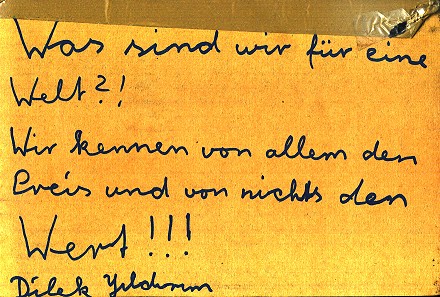 Was sind wir für eine
Welt?!
Wir kennen von allem den
Preis und von nichts den
Wert!!!
Dilek Yildirim